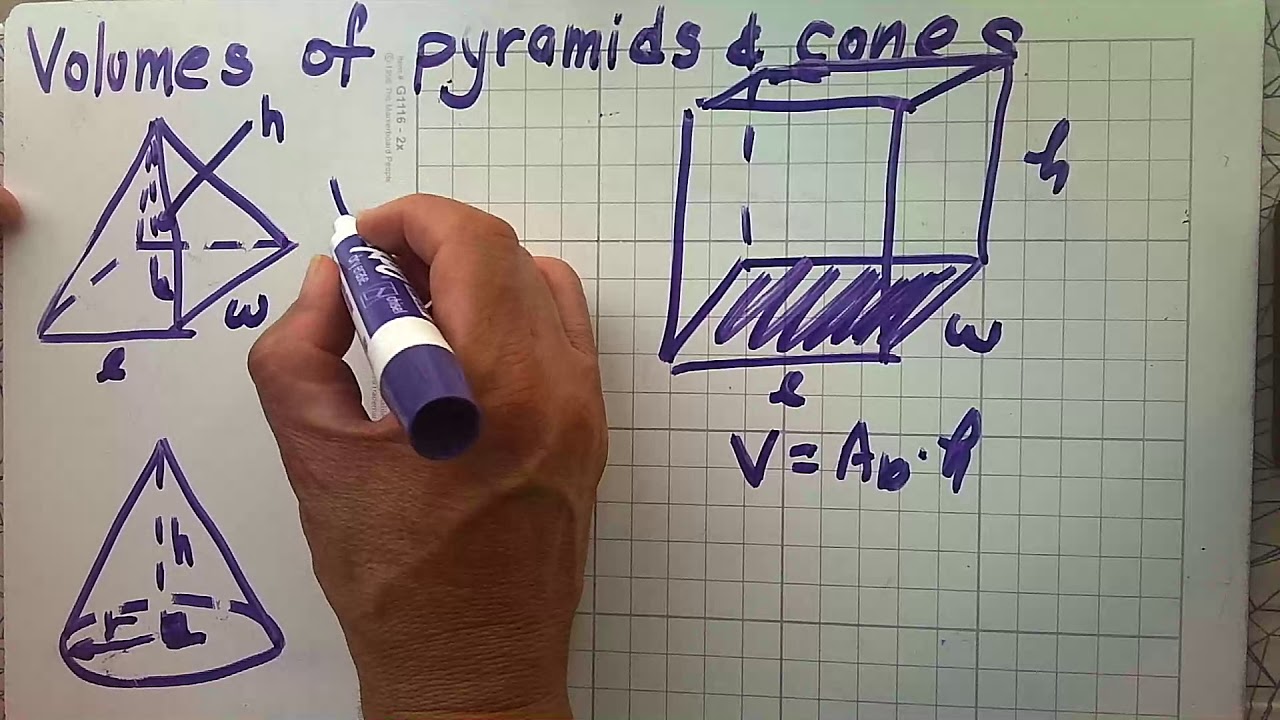 Volumes of pyramids & cones
Item# G1116 - 2x
© 1998 The Markerboard People
h
h
w
l
w
l
V = Ab · h
h
r